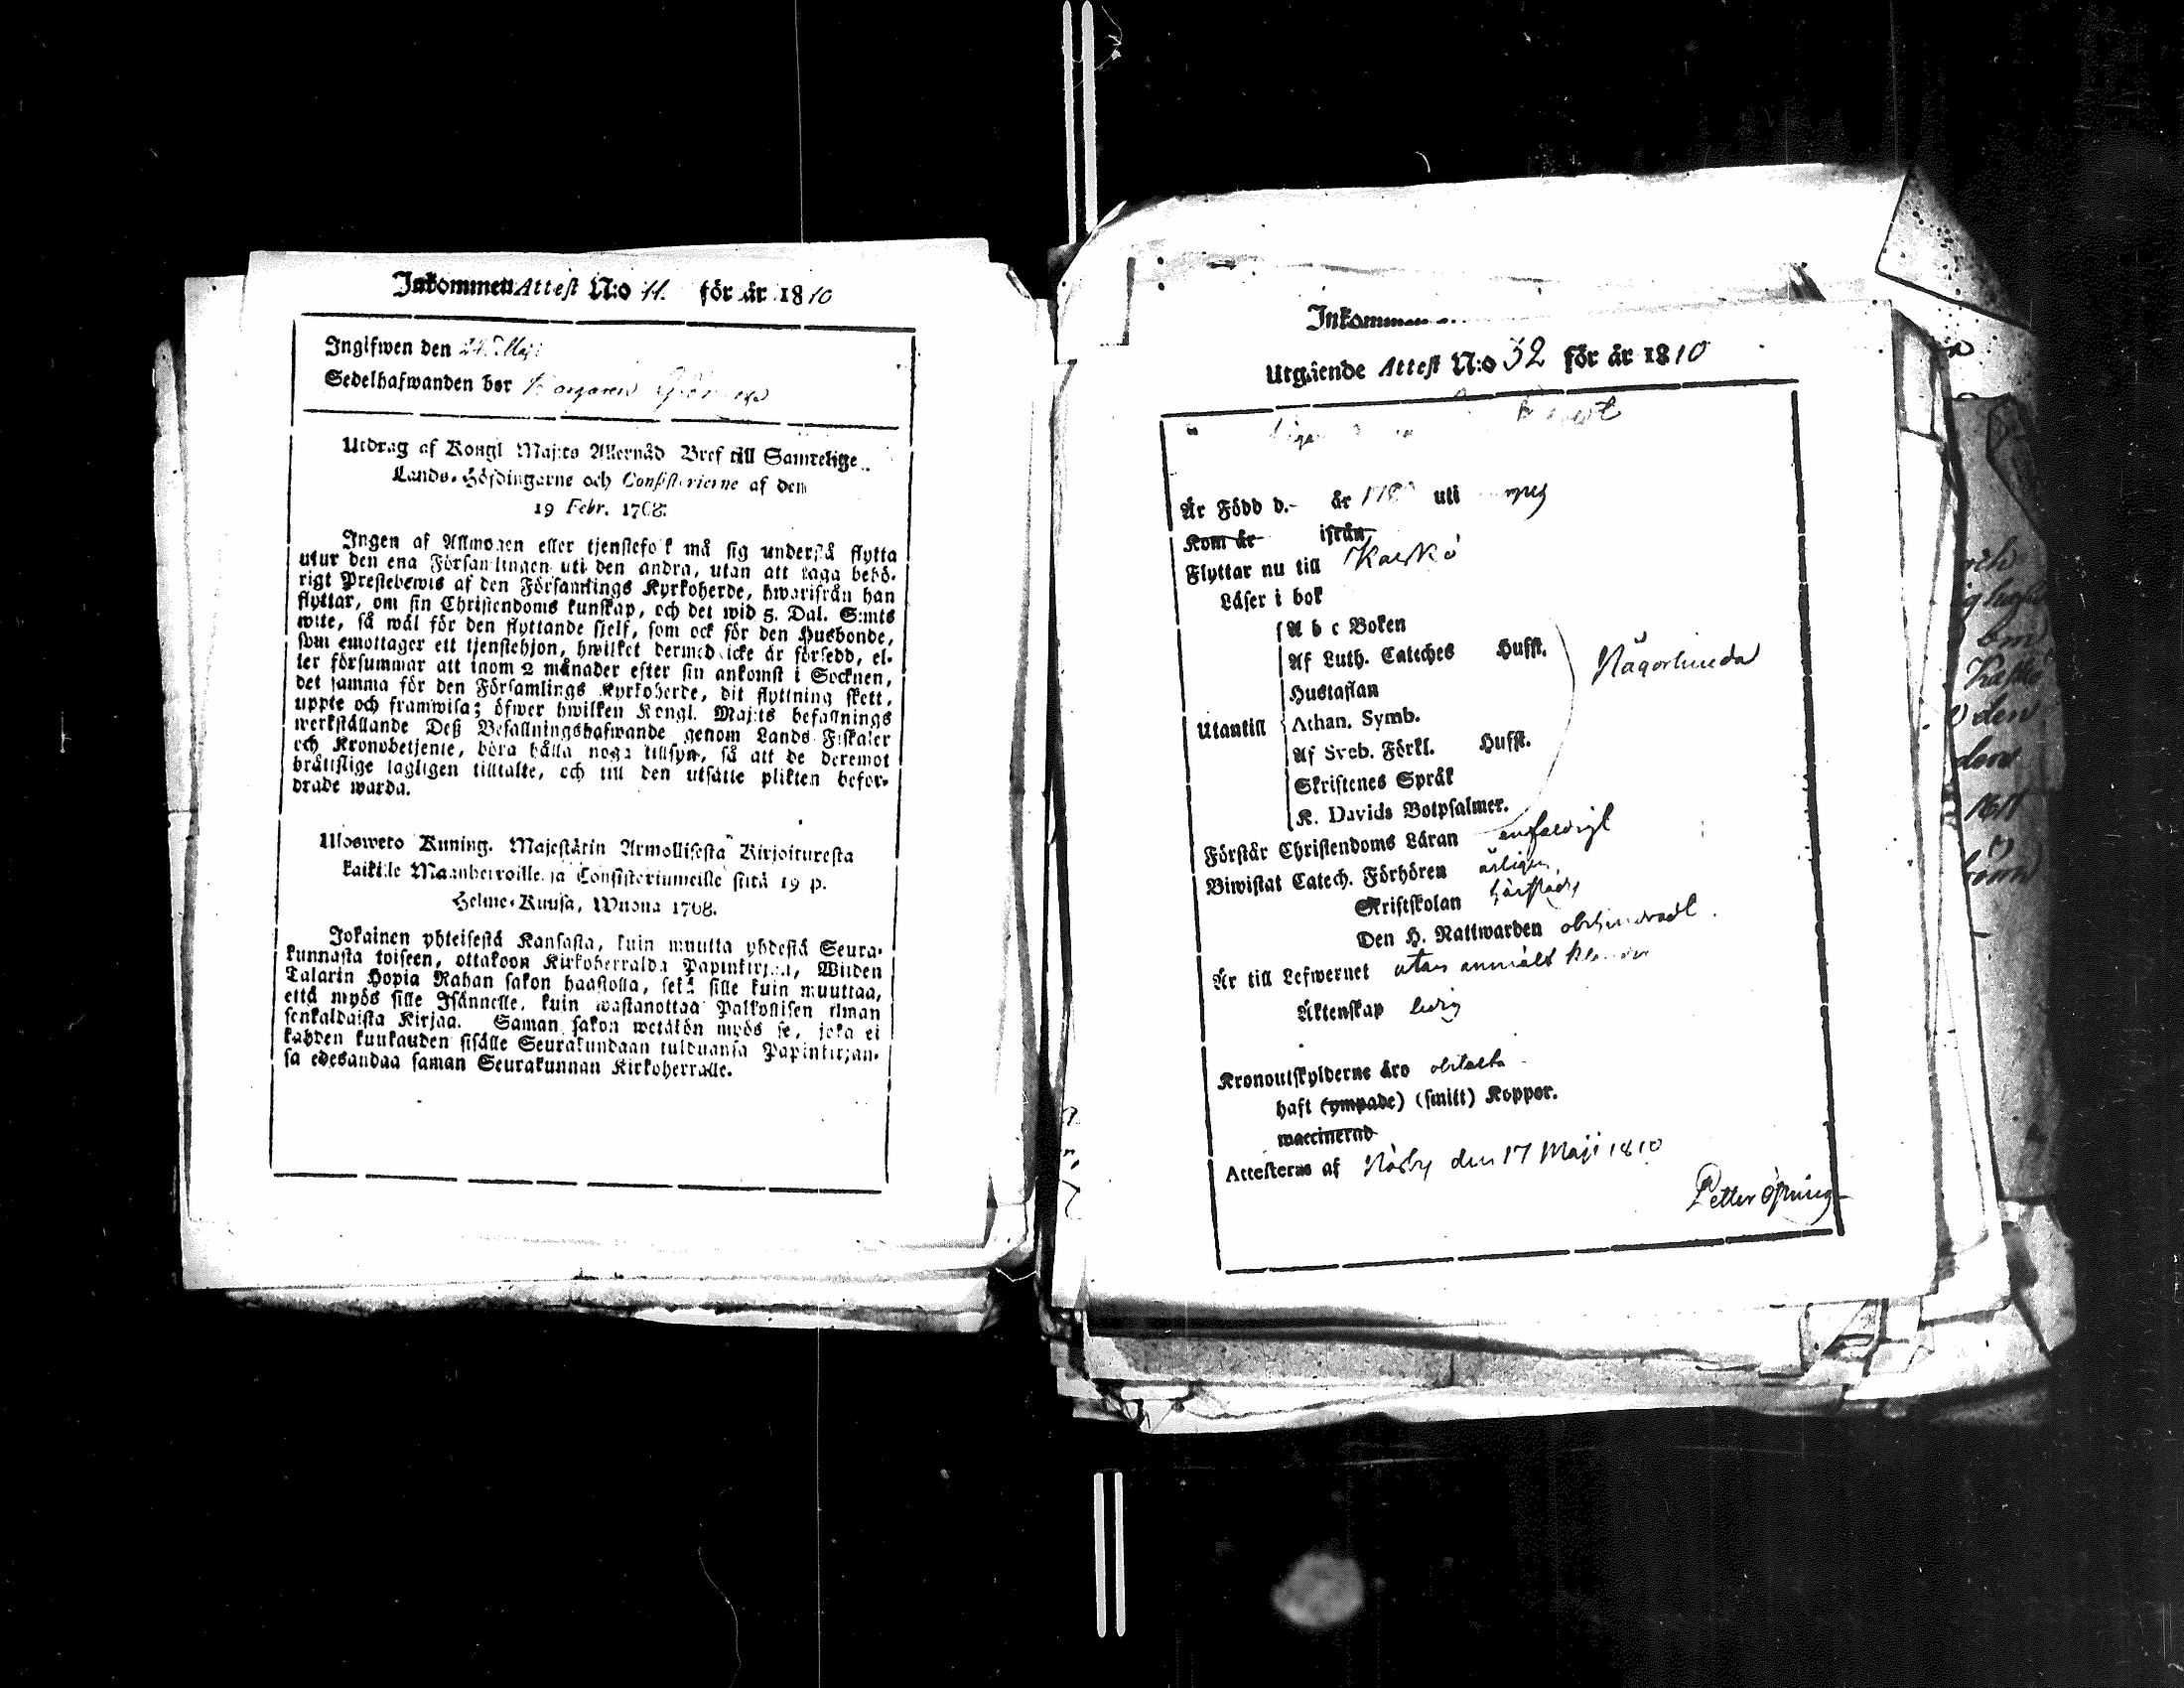 Inkommen Attest N:o 11. för år 1810
Ingifwen den 24 Maji
Sedelhafwanden bor
Utdrag af Kongl Maj:ts Allernåd Bref till Samtelige
Lands-Höfdingarne och Consistorierne af den
19 Febr. 1768.
Ingen af Allmogen eller tjenstefolk må sig understå flytta
utur den ena Församlingen uti den andra, utan att taga behö-
rigt Prestebewis af den Församlings Kyrkoherde, hwarifrån han
flyttar, om sin Christendoms kunskap, och det wid 5. Dal. S:mts
wite, så wäl för den flyttande sjelf, som ock för den Husbonde,
som emottager ett tjenstehjon, hwilket dermed icke är försedd, el-
ler försummar att inom 2 månader efter sin ankomst i Socknen,
det samma för den Församlings Kyrkoherde, dit flyttning skett,
uppte och framwisa; öfwer hwilken Kongl. Maj:ts befallnings
werkställande Deß Befallningshafwande genom Lands Fiskaler
och Kronobetjente, böra hålla noga tillsyn, så att de deremot
bråttslige lagligen tilltalte, och till den utsatte plikten befor-
drade warda.
Ulosweto Kuning. Majestätin Armollisesta Kirjoituresta
kaikille Maanherroille ja Consistoriumeille siitä 19 p.
Helme-Kuusa, Wuona 1768.
Jokainen yhteisestä Kansasta, kuin muutta yhdestä Seura-
kunnasta toiseen, ottakoon Kirkoherralda Papinkirjan, Wiiden
Talarin Hopia Rahan sakon haastolla, sekä sille kuin muuttaa,
että myös sille Isännelle, kuin wastanottaa Palkollisen ilman
senkaldaista Kirjaa. Saman sakon wetäkön myös se, joka ei
kahden kuukauden sisälle Seurakundaan tulduansa Papinkirjan-
sa edesandaa saman Seurakunnan Kirkoherralle.
Inkommen
Utgående Attest N:o 32 för år 1810
Är Född d.- år 178 uti
Kom år ifrån
Flyttar nu till Kaskö
Läser i bok
A b c Boken
Af Luth. Cateches Husst.
Någorlunda
Hustaflan
Utantill
Athan. Symb.
Af Sveb. Förkl. Husst.
Skriftenes Språk
K. Davids Botpsalmer.
Förstår Christendoms Läran enfaldigt
Biwistat Catech. Förhören årligen
Skriftskolan härstädes
Den H. Nattwarden obehindradt.
Är till Lefwernet utan anmält klander
Äktenskap ledig
Kronoutskylderne äro obetalta
haft (ympade) (smitt) Koppor.
waccinerad
Attesteras af Närby den 17 Maji 1810
Petter